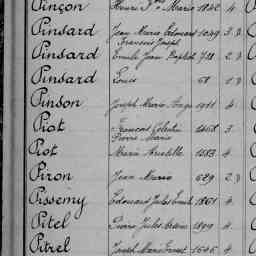 Pinçon Henri Jn Marie 1842 4
Pinsard Jean Marie Edouard 1049 3.
François Joseph
Pinsard Emile Jean Baptiste 718 2
Pinsard Louis 58 1
Pinson Joseph Marie Ange 1911 4
Piot François Célestin 1468 3.
Pierre Marie
Piot Marie Aristide 1583 4
Piron Jean Marie 629 2
Pissemy Edouard Jules Emile 1861 4.
Pitel Pierre Jules 1899 4.
Pitrel Joseph Marie Ernest 1646 4.